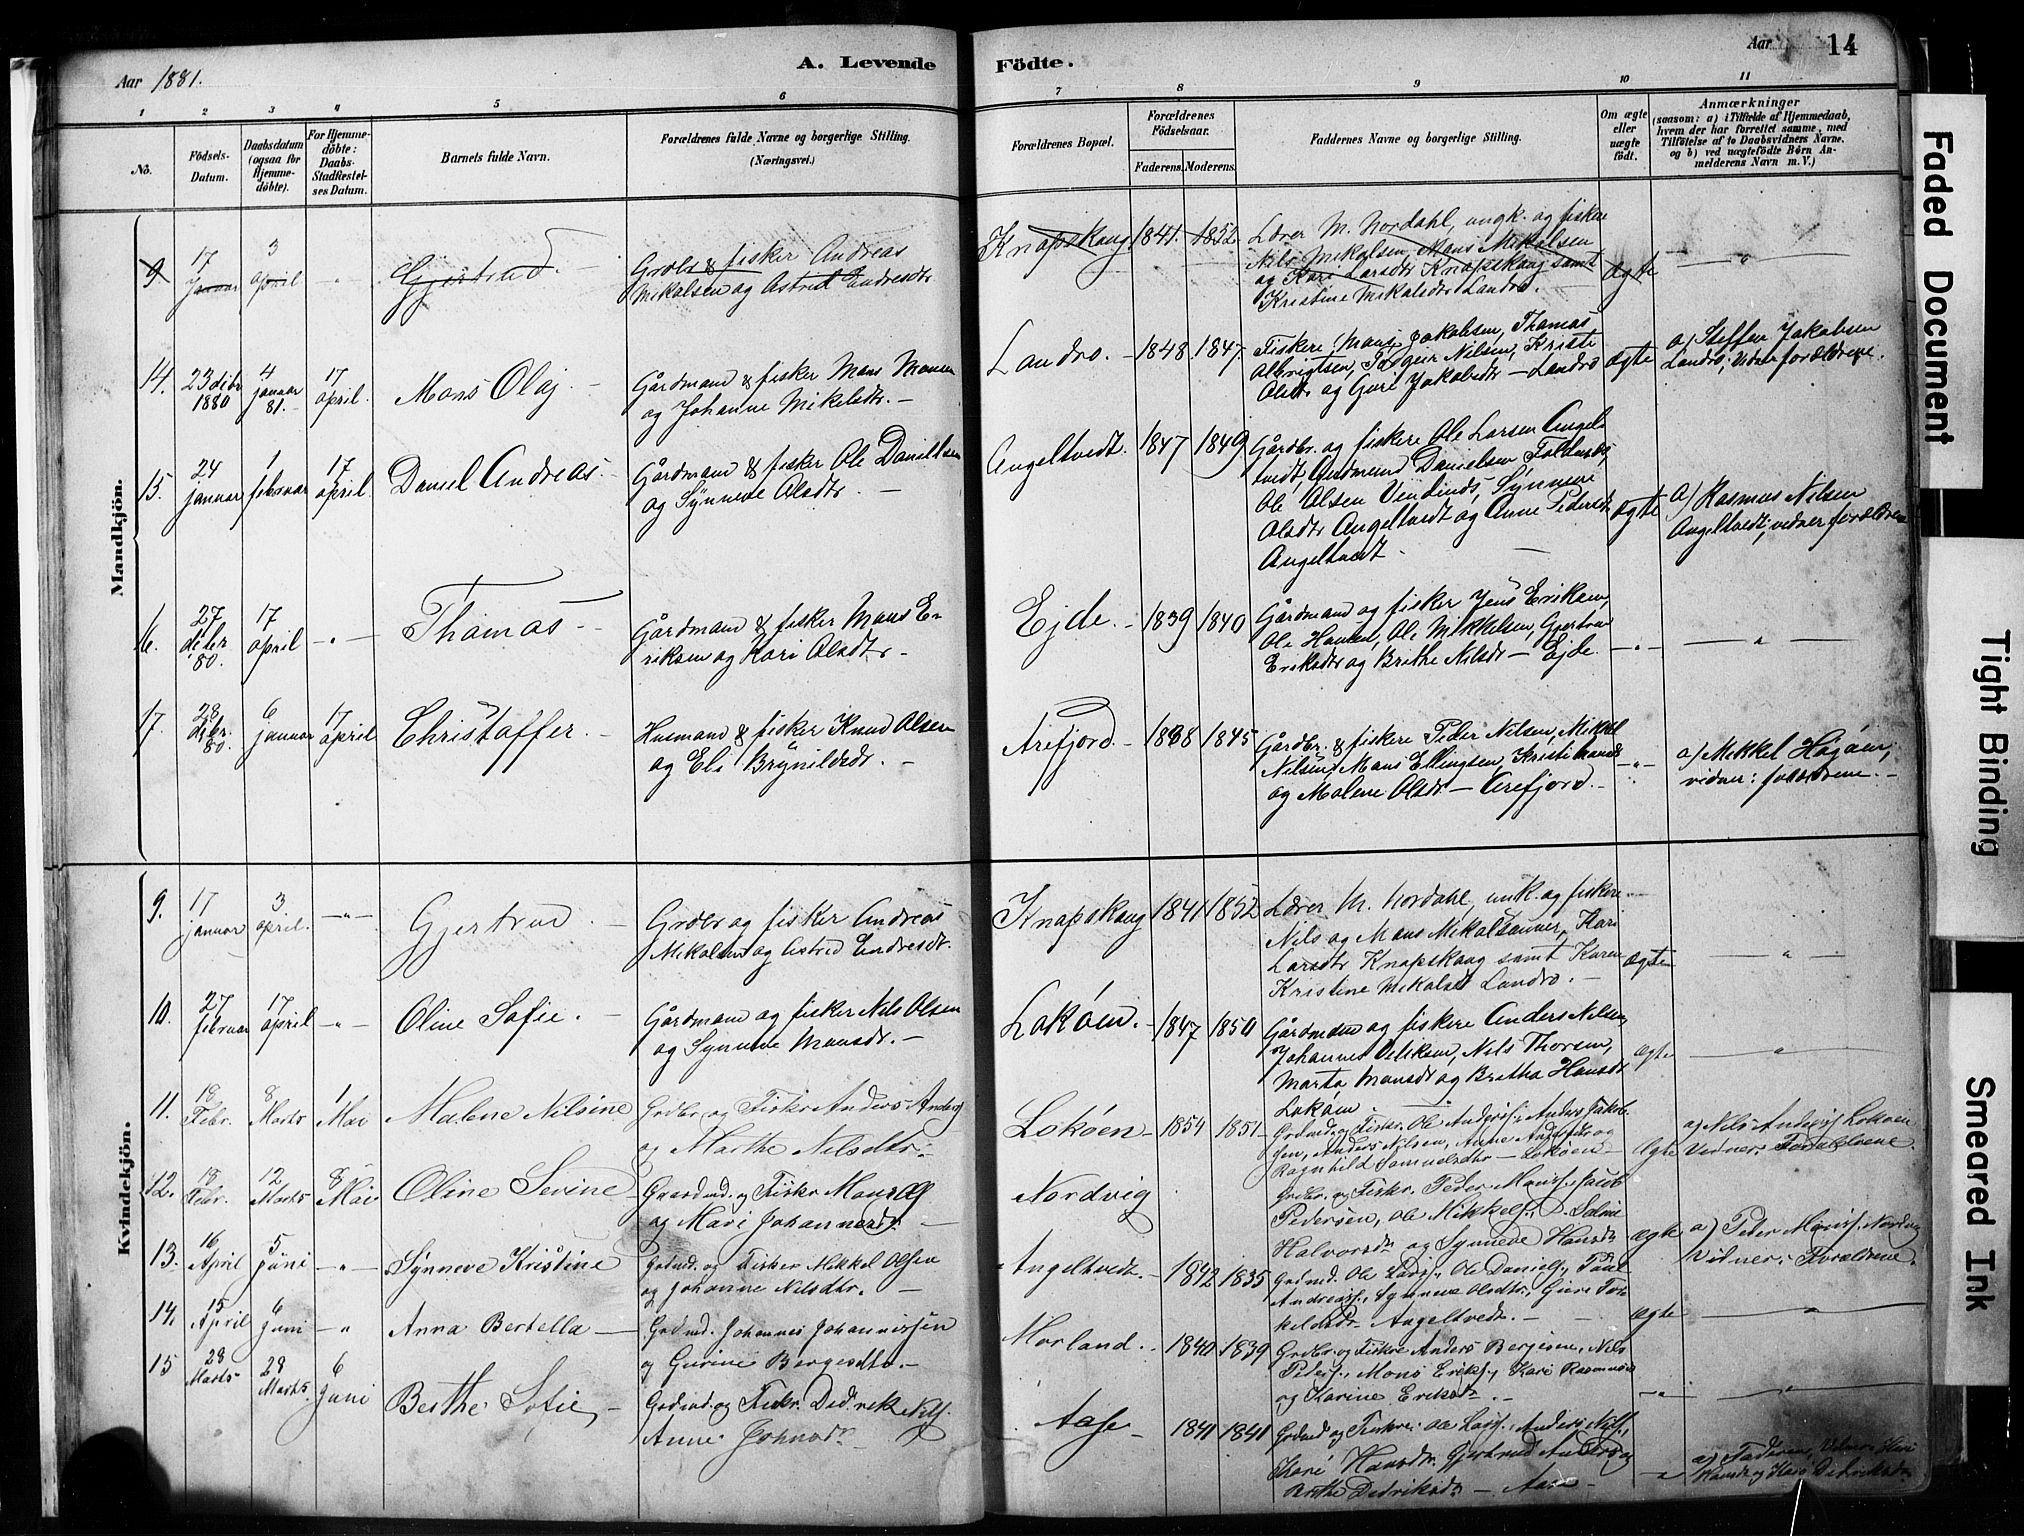 Aar 1881.
A. Levende Födte.
Aar
14
1 2 3 4 5 6 7 8 9 10 11
No.
Födsels-
Datum.
Daabsdatum
(ogsaa for
Hjemme-
döbte).
For Hjemme-
döbte:
Daabs-
Stadfæstel-
ses Datum.
Barnets fulde Navn.
Forældrenes fulde Navne og borgerlige Stilling.
(Næringsvei.)
Forældrenes Bopæl.
Forældrenes
Födselsaar.
Faderens. Moderens.
Faddernes Navne og borgerlige Stilling.
Om ægte
eller
uægte
födt.
Anmærkninger
(saasom: a) i Tilfælde af Hjemmedaab,
hvem der har forrettet samme, med
Tilföielse af to Daabsvidners Navne,
og b) ved uægtefödte Børn An-
melderens Navn m. V.)
Mandkjön.
9 17 januar 3 april - " - Gjertrud. -
Grdbr & fisker Andreas
Mikalsen og Astrid Endresdtr
Knapskaug 1841. 1852.
Lærer M. Nordahl, ungk. og fiskere
Nils Mikalsen, Mons Mikalsen
og Kari Larsdtr Knapskaug samt
Kristine Mikalsdtr Landro.
ægte - " -
14. 23 dcbr 1880 4 januar 81. - 17 april. Mons Olaj -
Gårdmand & fisker Mons Monsen
og Johanne Mikelsdtr. -
Landro. - 1848. 1847
Fiskere Mons Jakobsen, Thomas
Albrigtsen, Torgeir Nilsen, Kristi
Olsdtr og Guri Jakobsdtr - Landro
ægte
a) Steffen Jakobsen
Landro. Vidner forældrene.
15. 24 januar 1 februar 17 april Daniel Andreas. -
Gårdmand & fisker Ole Danielsen
og Synneve Olsdtr. -
Angeltvedt. 1847 1849
Gårdbr. og fiskere Ole Larsen Angel-
tvedt, Gudmund Danielsen Foldnes,
Ole Olsen Vindenes, Synneve
Olsdtr Angeltvedt og Anne Pedersdtr
Angeltvedt. -
ægte
a) Rasmus Nilsen
Angeltvedt, vidner forældrene
16. 27 dcbr 80. 17 april - " - Thomas -
Gårdmand & fisker Mons E-
riksen og Kari Olsdtr. -
Ejde. - 1839 1840
Gårdmand og fisker Jens Eriksen,
Ole Hansen, Ole Mikkelsen, Gjertrud
Eriksdtr og Brithe Nilsdr - Ejde.
- " - - " -
17. 28 dcbr. 80. 6 januar 17 april Christoffer. -
Husmand & fisker Knud Olsen
og Eli Brynildsdr. -
Arefjord. - 1838 1845
Gårdbr. & fiskere Peder Nilsen, Mikkel
Nilsen, Mons Ellingsen, Kristi
og Malene Olsdr - Arefjord. -
- " -
a) Mikkel Højøen,
vidner: forældrene. -
Kvindekjön.
9. 17 januar 3 april. - " - Gjertrud -
Grdbr og fisker Andreas
Mikalsen og Astrid Endresdt.
Knapskaug 1841 1852
Lærer M. Nordahl, unk. og fiskere
Nils og Mons Mikalsønner, Kari
Larsdtr Knapskaug samt Karen
Kristine Mikalsd Landro. -
ægte - " -
10. 27 februar 17 april - " - Oline Sofie. -
Gårdmand og fisker Nils Olsen
og Synneve Monsdr. -
Lokøen. - 1847 1850
Gårdmænd og fiskere Anders Nilsen,
Johannes Villiksen, Nils Thorsen,
Marta Monsdr og Bretha Hansdr
Lokøen. -
ægte - " -
11. 18 Febr. 8 Marts 1 Mai Malene Nilsine
Grdbr og Fisker Anders Anders
og Marthe Nilsdtr. -
Lokøen - 1854 1851
Grdmd. og Fiskr. Ole Andersf., Anders Jakob-
sen, Anders Nilsen, Anne Andersdtr og
Ragnhild Samuelsdtr - Lokøen -
ægte
a) Nils Andersf Lokøen
Vidner: Forældrene
12. 18 Febr. 12 Marts 8 Mai Oline Sevine
Gaardmd. og Fiskr Mons Ols
og Mari Johannesdr. -
Nordvig
Grdbr. og Fiskr. Peder Monsf., Jacob
Pedersen, Ole Mikkelf.,
Halvorsdr og Synneve Hansdr
ægte
a) Peder Monsf. Nordvig
Vidner: Forældrene.
13. 16 April 5 juni - " - Synneve Kristine
Grdmd. og Fisker Mikkel Olsen
og Johanne Nilsdtr. -
Angeltvedt. - 1842 1835
Grdmd. Ole Larsf., Ole Danielf., Paul
Andreasf., Synneve Olsdtr., Gure Tor-
kelsdtr Angeltvedt. -
ægte - " -
14. 15 April 6 Juni - " Anna Bertella -
Grdmd. Johannes Johannessen
og Gurine Børgesdtr. -
Morland. - 1840 1839
Grdbr. og Fiskre Anders Børgesen, Nils
Pedersf., Mons Eriksf., Kari Rasmusdr
og Karine Eriksdr. -
- " - - " -
15 28 Marts 28 Marts. 6 Juni Berthe Sofie,
Grdmd. og Fiskr. Dedrek Nilsf.
Anne Johnsdr
Aase - 1841 1841
Grdmd og Fiskre: Ole Larsf., Anders Nilsf.,
Kari Hansdtr. Gjertrud Andersdr og
Berthe Dedriksdr - Aase -
- " -
a) Faderen, Vidner: Kari
Hansdr og Kari Dedriksdr
Faded Document
Tight Binding
Smeared Ink